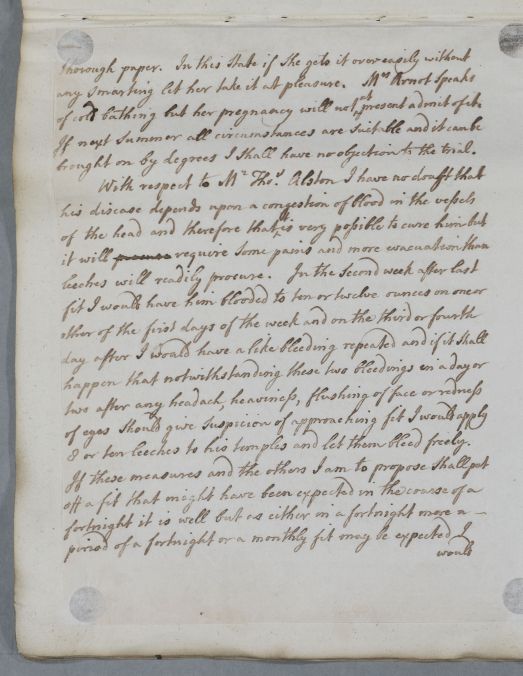 thorough paper. In this state if she gets it over easily without
any smarting let her take it at pleasure. Mrs Arnot speaks
of cold bathing but her pregnancy will not at present admit of it.
If next Summer all circumstances are suitable and it can be
brought on by degrees I shall have no objection to the trial.
With respect to Mr Thos. Alston I have no doubt that
his disease depends upon a congestion of blood in the vessels
of the head and therefore that it is very possible to cure him but
it will procure require some pains and more evacuation than
leeches will readily procure. In the second week after last
fit I would have him blooded to ten or twelve ounces on one or
other of the first days of the week and on the third or fourth
day after I would have a like bleeding repeated and if it shall
happen that notwithstanding these two bleedings in a day or
two after any headach, heaviness, flushing of face or redness
of eyes should give suspicion of approaching fit I would apply
8 or ten leeches to his temples and let them bleed freely.
If these measures and the others I am to propose shall put
off a fit that might have been expected in the course of a
fortnight it is well but as either in a fortnight more a
period of a fortnight or a monthly fit may be expected I
would